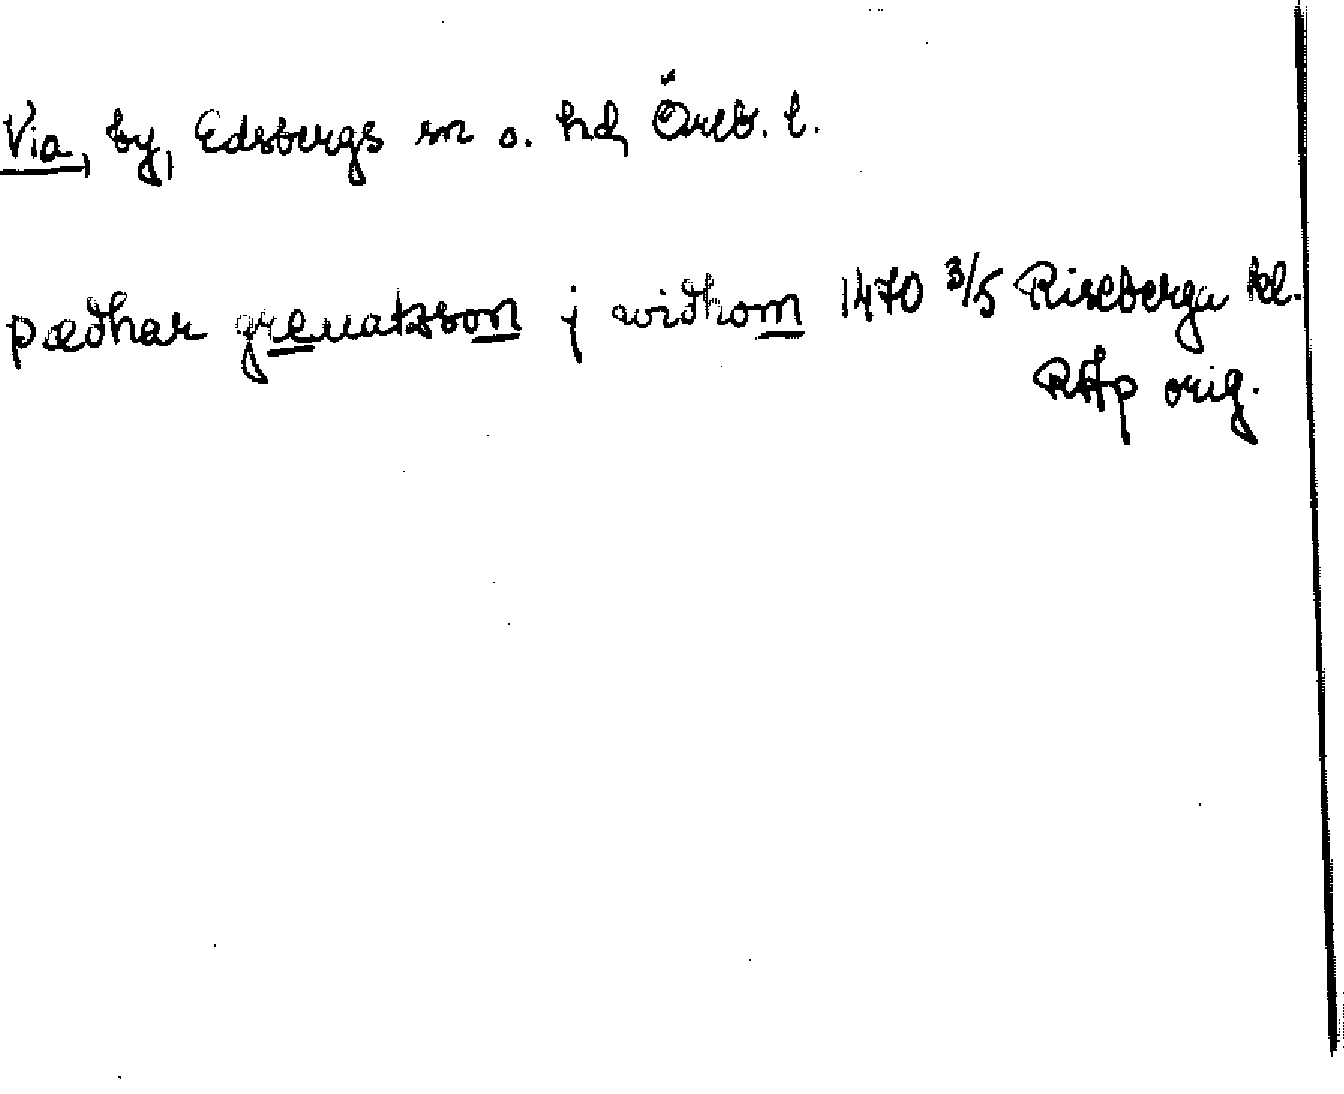 Via, by, Edsbergs sn o. hd, Öreb. l.
pædhar grenatzson j widhom 1470 3/5 Riseberga kl.
RAp orig.